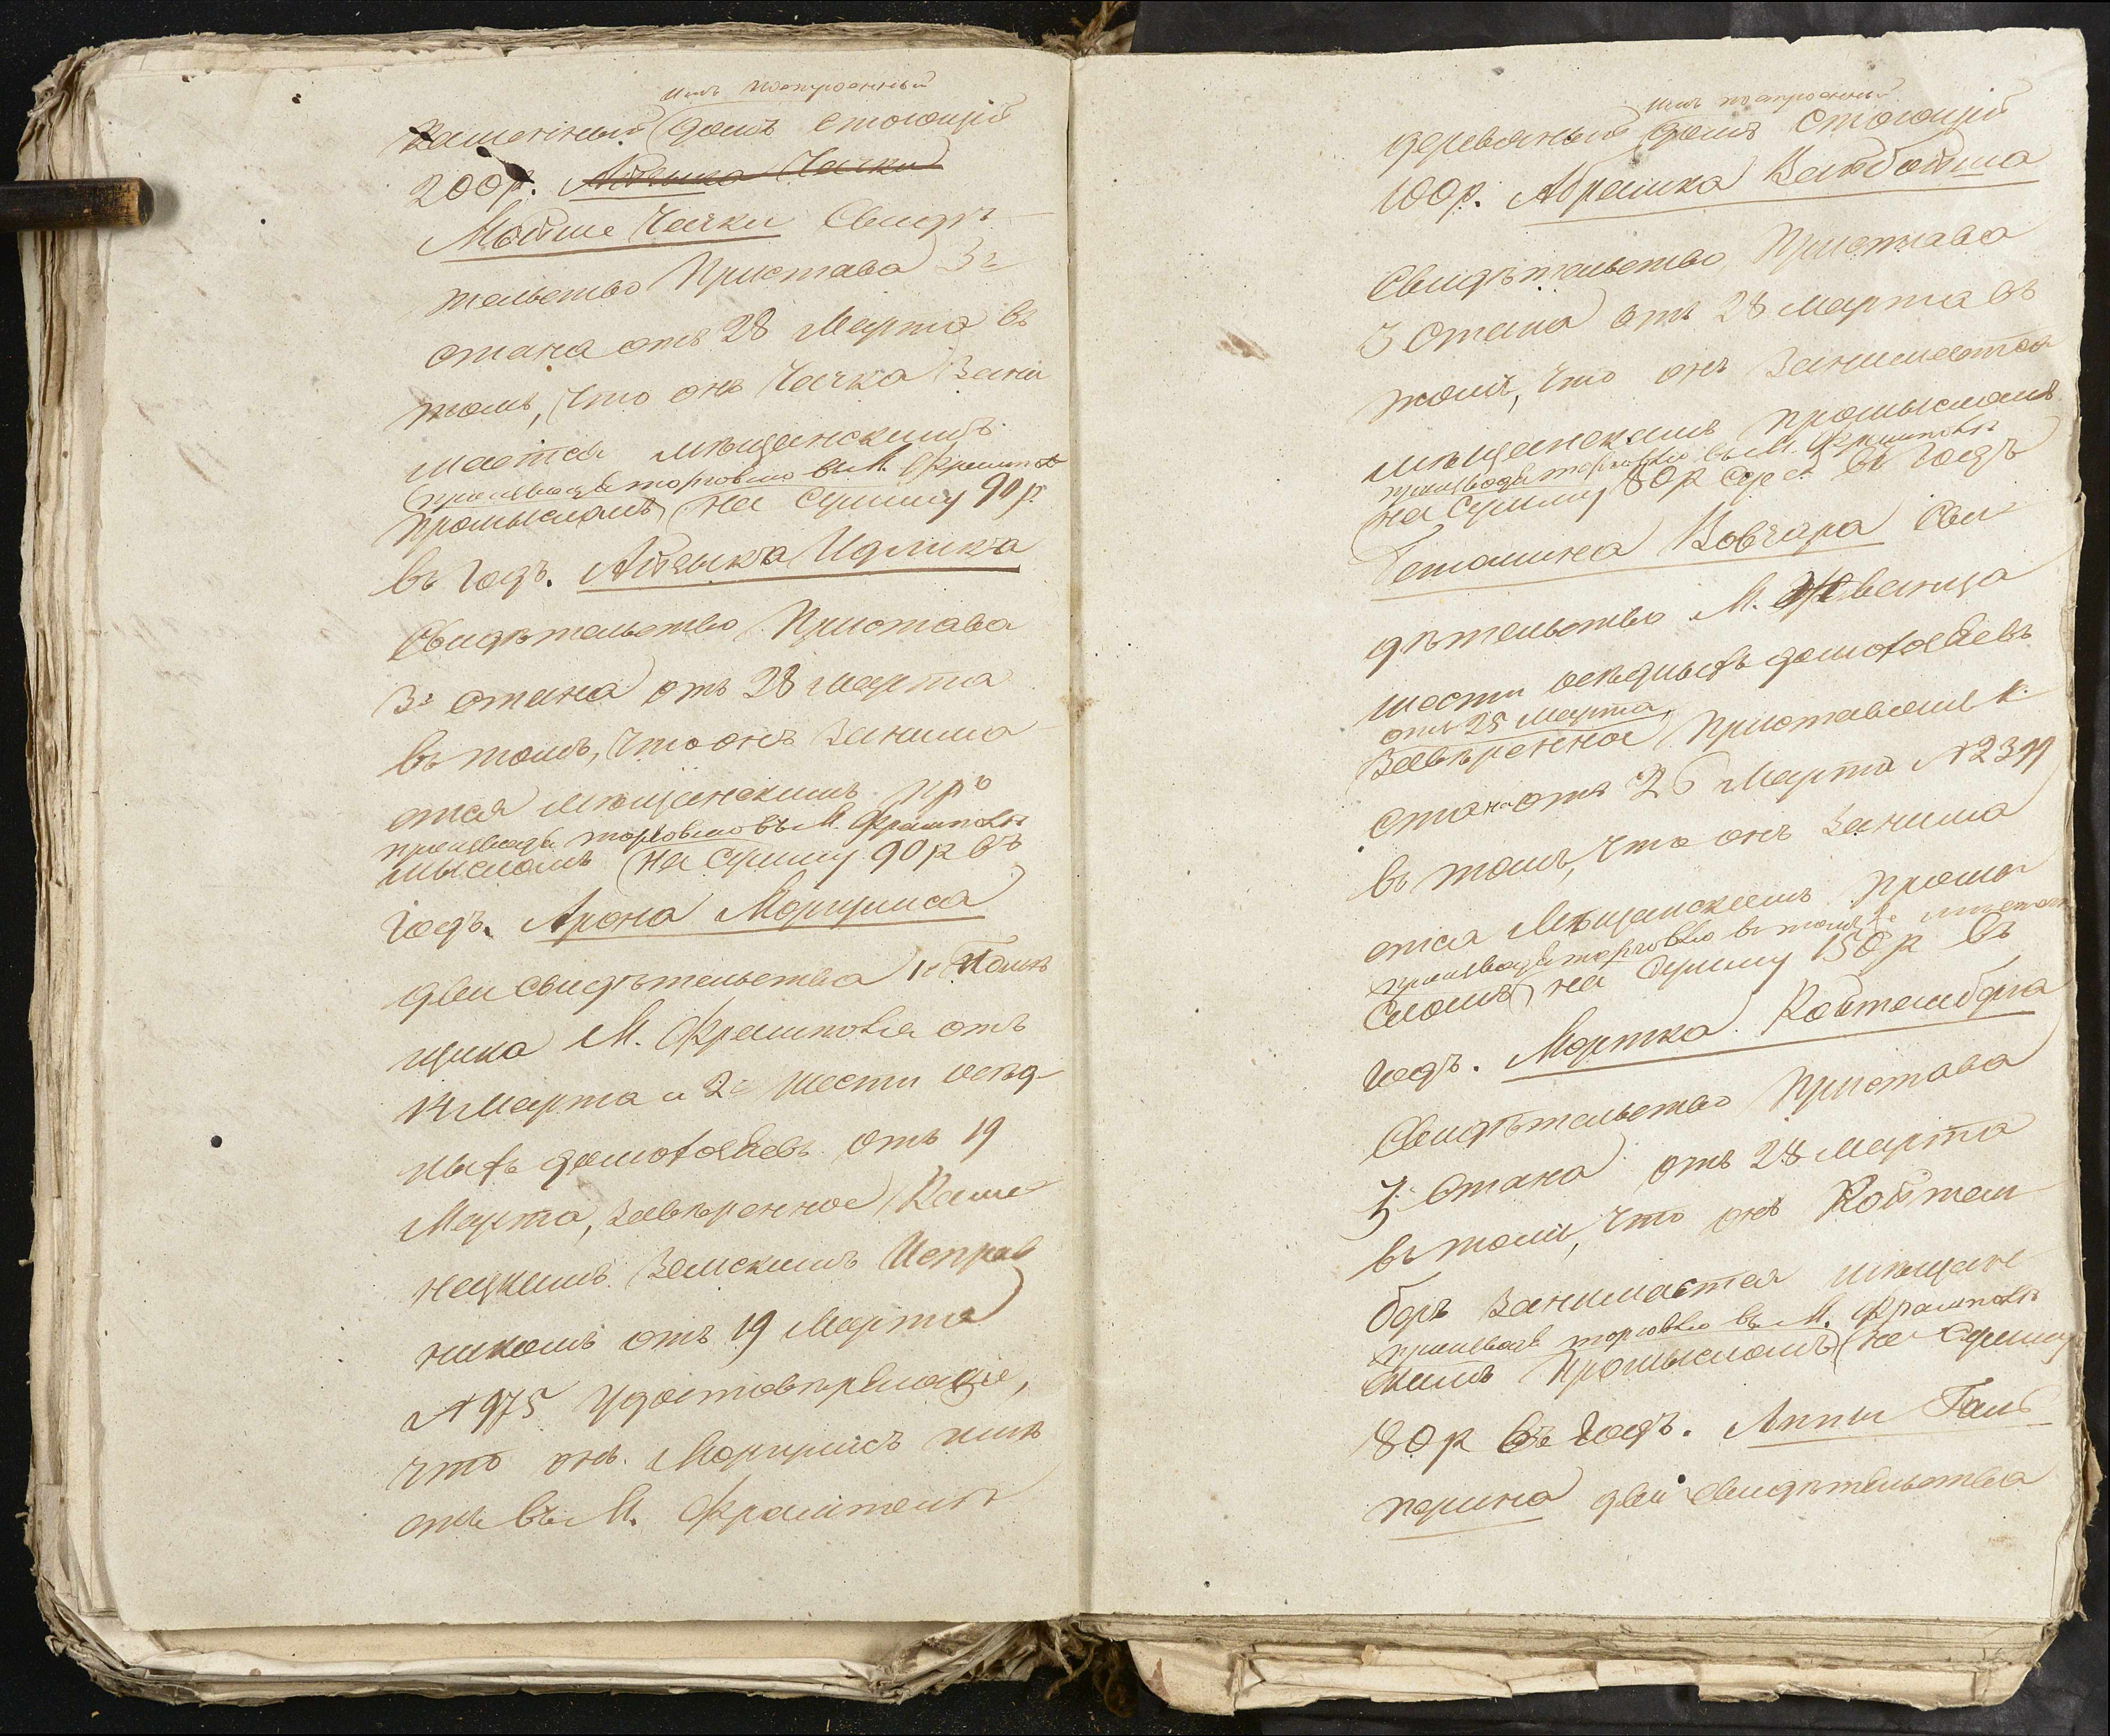 имъ построенный
Каменный домъ стоющій
200 р. Айзыка Чачки
Мойше Чачки Свидѣ-
тельство Пристава 3го
стана отъ 28 Марта въ
томъ, что онъ Чачка Зани
мается мѣщанскимъ
производя торговлю въ М. Фрамполѣ
промысломъ на сумму 90 р.
въ годъ. Айзыка Идлика
Свидѣтельство Пристава
3го стана отъ 28 Марта
въ томъ, что онъ Занима
ется мѣщанскимъ про
производя торговлю въ М. Фрамполѣ
мысломъ на сумму 90 р въ
годъ. Арона Моргулиса
два свидѣтельства 1е Помѣ
щика М. Фрамполя отъ
14 Марта и 2е шести осѣд-
лыхъ домохозяевъ отъ 19
Марта, завѣренное Каме
нецкимъ Земскимъ Исправ
никомъ отъ 19 Марта
№ 975 Удостовѣряющіе,
что онъ Моргулисъ имѣ
етъ въ М. Фрамполѣ
имъ построенный
деревяный домъ стоющій
100 р. Абрамка
Свидѣтельство Пристава
3 Стана отъ 28 Марта въ
томъ, что онъ Занимается
мѣщанскимъ промысломъ
производя торговлю въ М. Фрамполѣ
на сумму 80 р сер. въ годъ
Вовчара Сви
дѣтельство М. Жванца
шести осѣдлыхъ домохозяевъ
отъ 25 Марта,
Завѣренное Приставомъ
Стана отъ 26 Марта № 2311
въ томъ, что онъ Занима
ется Мѣщанскимъ промы
производя торговлю въ томъ же
сломъ на Сумму 150 р въ
годъ. Мортка Койтембера
Свидѣтельство Пристава
3 Стана отъ 28 Марта
въ томъ, что онъ Койтем
беръ Занимается мѣщанс
производя торговлю въ М. Фрамполѣ
кимъ Промысломъ на Сумму
80 р въ годъ. Липы Галь
перина два свидѣтельства